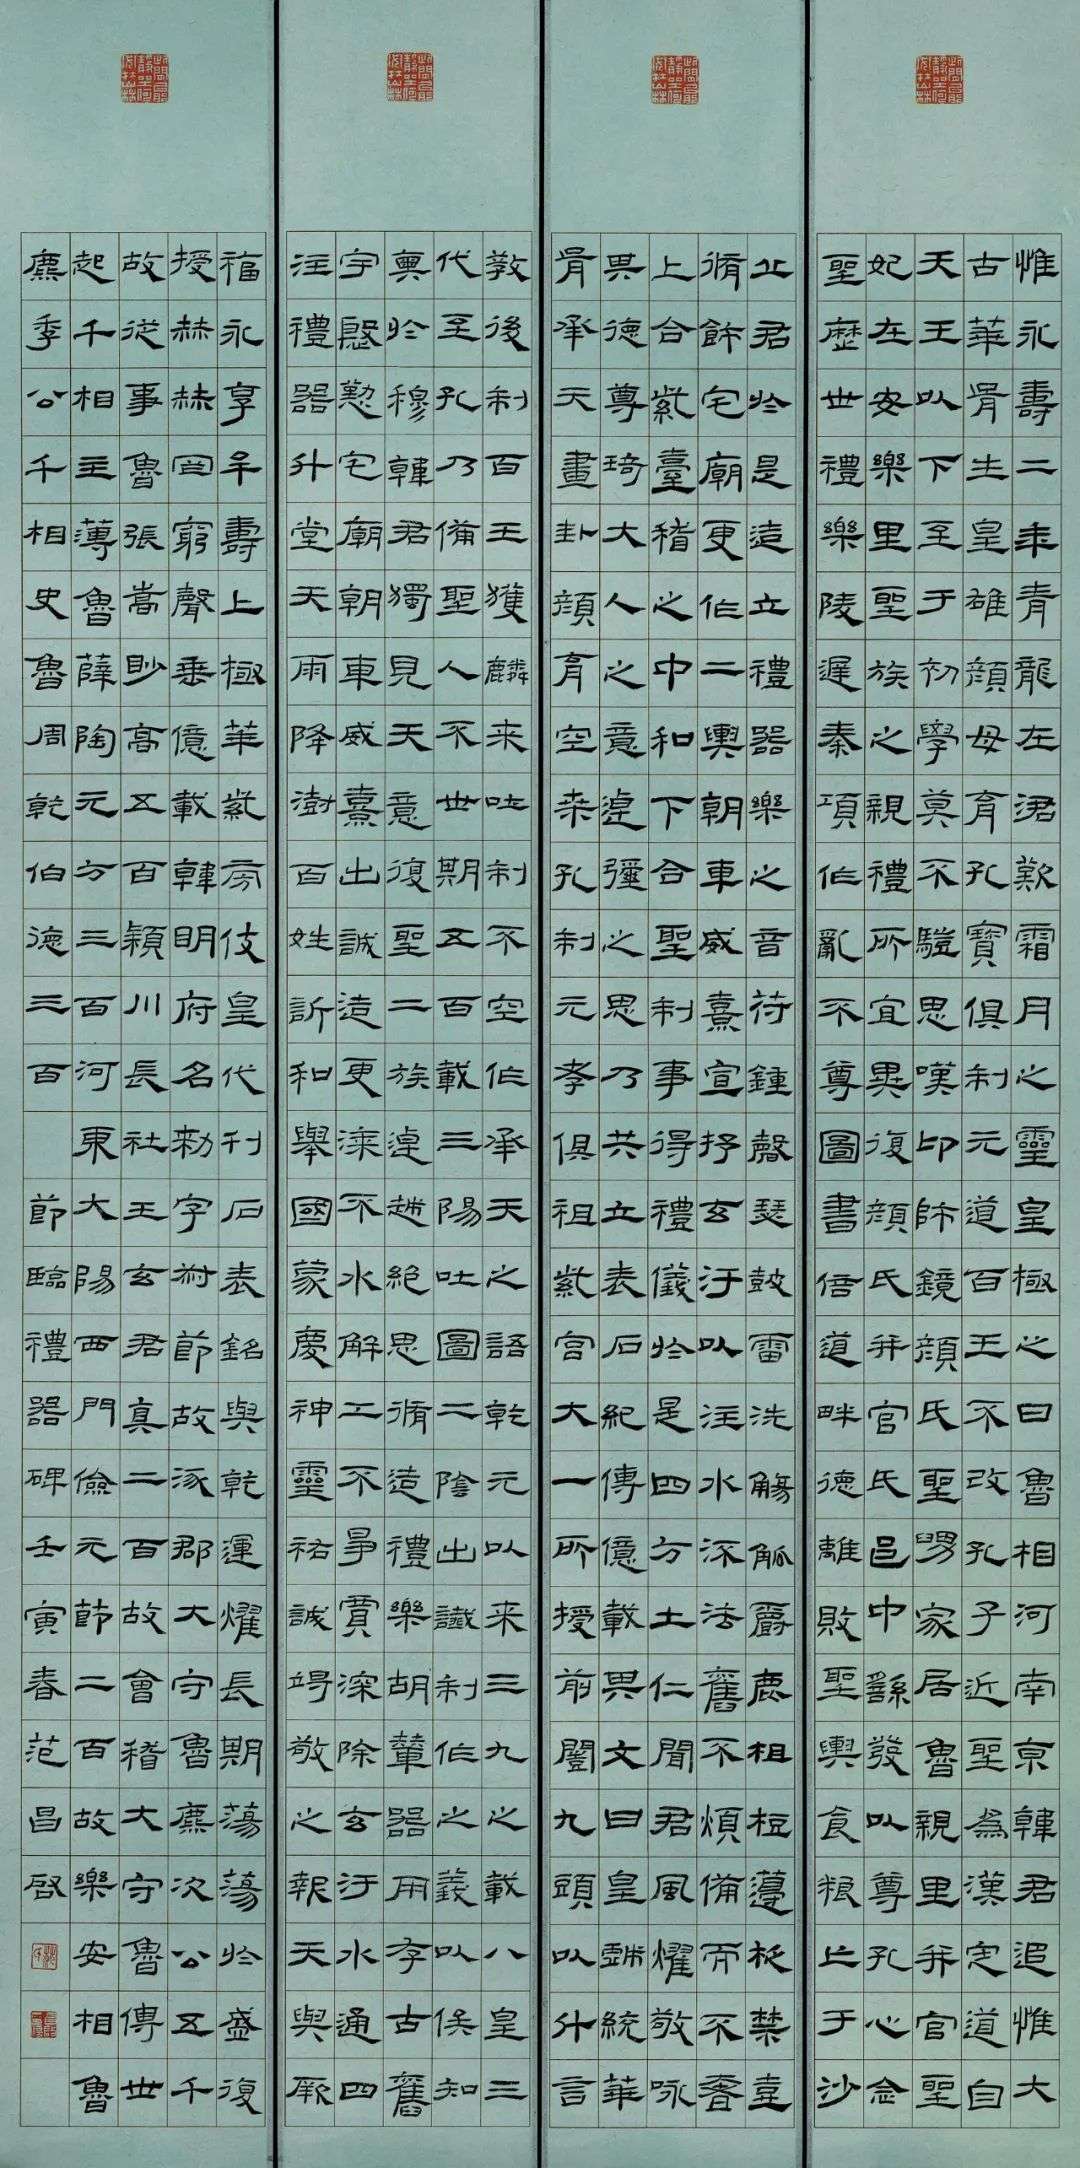 惟永壽二年青龍在涒歎霜月之靈皇極之日魯相河南京韓君追惟大
古華胥生皇雄顏母育孔寶俱制元道百王不改孔子近聖為漢定道自
天王以下至于初學莫不驥思嘆卬師鏡顏氏聖舅家居魯親里并官聖
妃在安樂里聖族之親禮所宜異復顏氏并官氏邑中繇發以尊孔心念
聖歷世禮樂陵遲秦項作亂不尊圖書倍道畔德離敗聖輿食糧亡于沙
丘君於是造立禮器樂之音符鍾磬瑟鼓雷洗觴觚爵鹿柤梪籩柉禁壺
脩飾宅廟更作二輿朝車威熹宣抒玄汙以注水流法舊不煩備而不奢
上合紫臺稽之中和下合聖制事得禮儀於是四方土仁聞君風燿敬咏
其德尊琦大人之意逴彌之思乃共立表石紀傳億載其文曰皇戲統華
胥承天畫卦顏育空桒孔制元孝俱祖紫宮大一所授前闓九頭以什言
教後制百王獲麟来吐制不空作承天之語乾元以来三九之載八皇三
代至孔乃備聖人不世期五百載三陽吐圖二陰出讖制作之義以俟知
奧於穆韓君獨見天意復聖二族逴越絕思脩造禮樂胡輦器用存古舊
宇慇懃宅廟朝車威熹出誠造更漆不水解工不爭賈深除玄汙水通四
注禮器升堂天雨降澍百姓訢和舉國蒙慶神靈祐誠竭敬之報天與厥
福永享牟壽上極華紫旁伎皇代刊石表銘與乾運燿長期蕩蕩於盛復
授赫赫罔窮聲垂億載韓明府名勑字叔節故涿郡大守魯麃次公五千
故從事魯張嵩眇高五百潁川長社王玄君真二百故會稽大守魯傅世
起千相主薄魯薛陶元方三百河東大陽西門儉元節二百故樂安相魯
麃季公千相史魯周乾伯德三百 節臨禮器碑壬寅春范昌啟